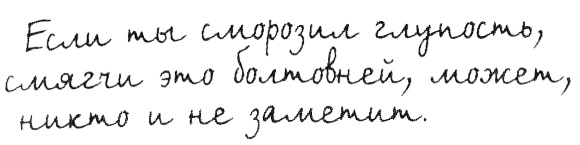 Если ты сморозил глупость,
смягчи это болтовней, может,
никто и не заметит.